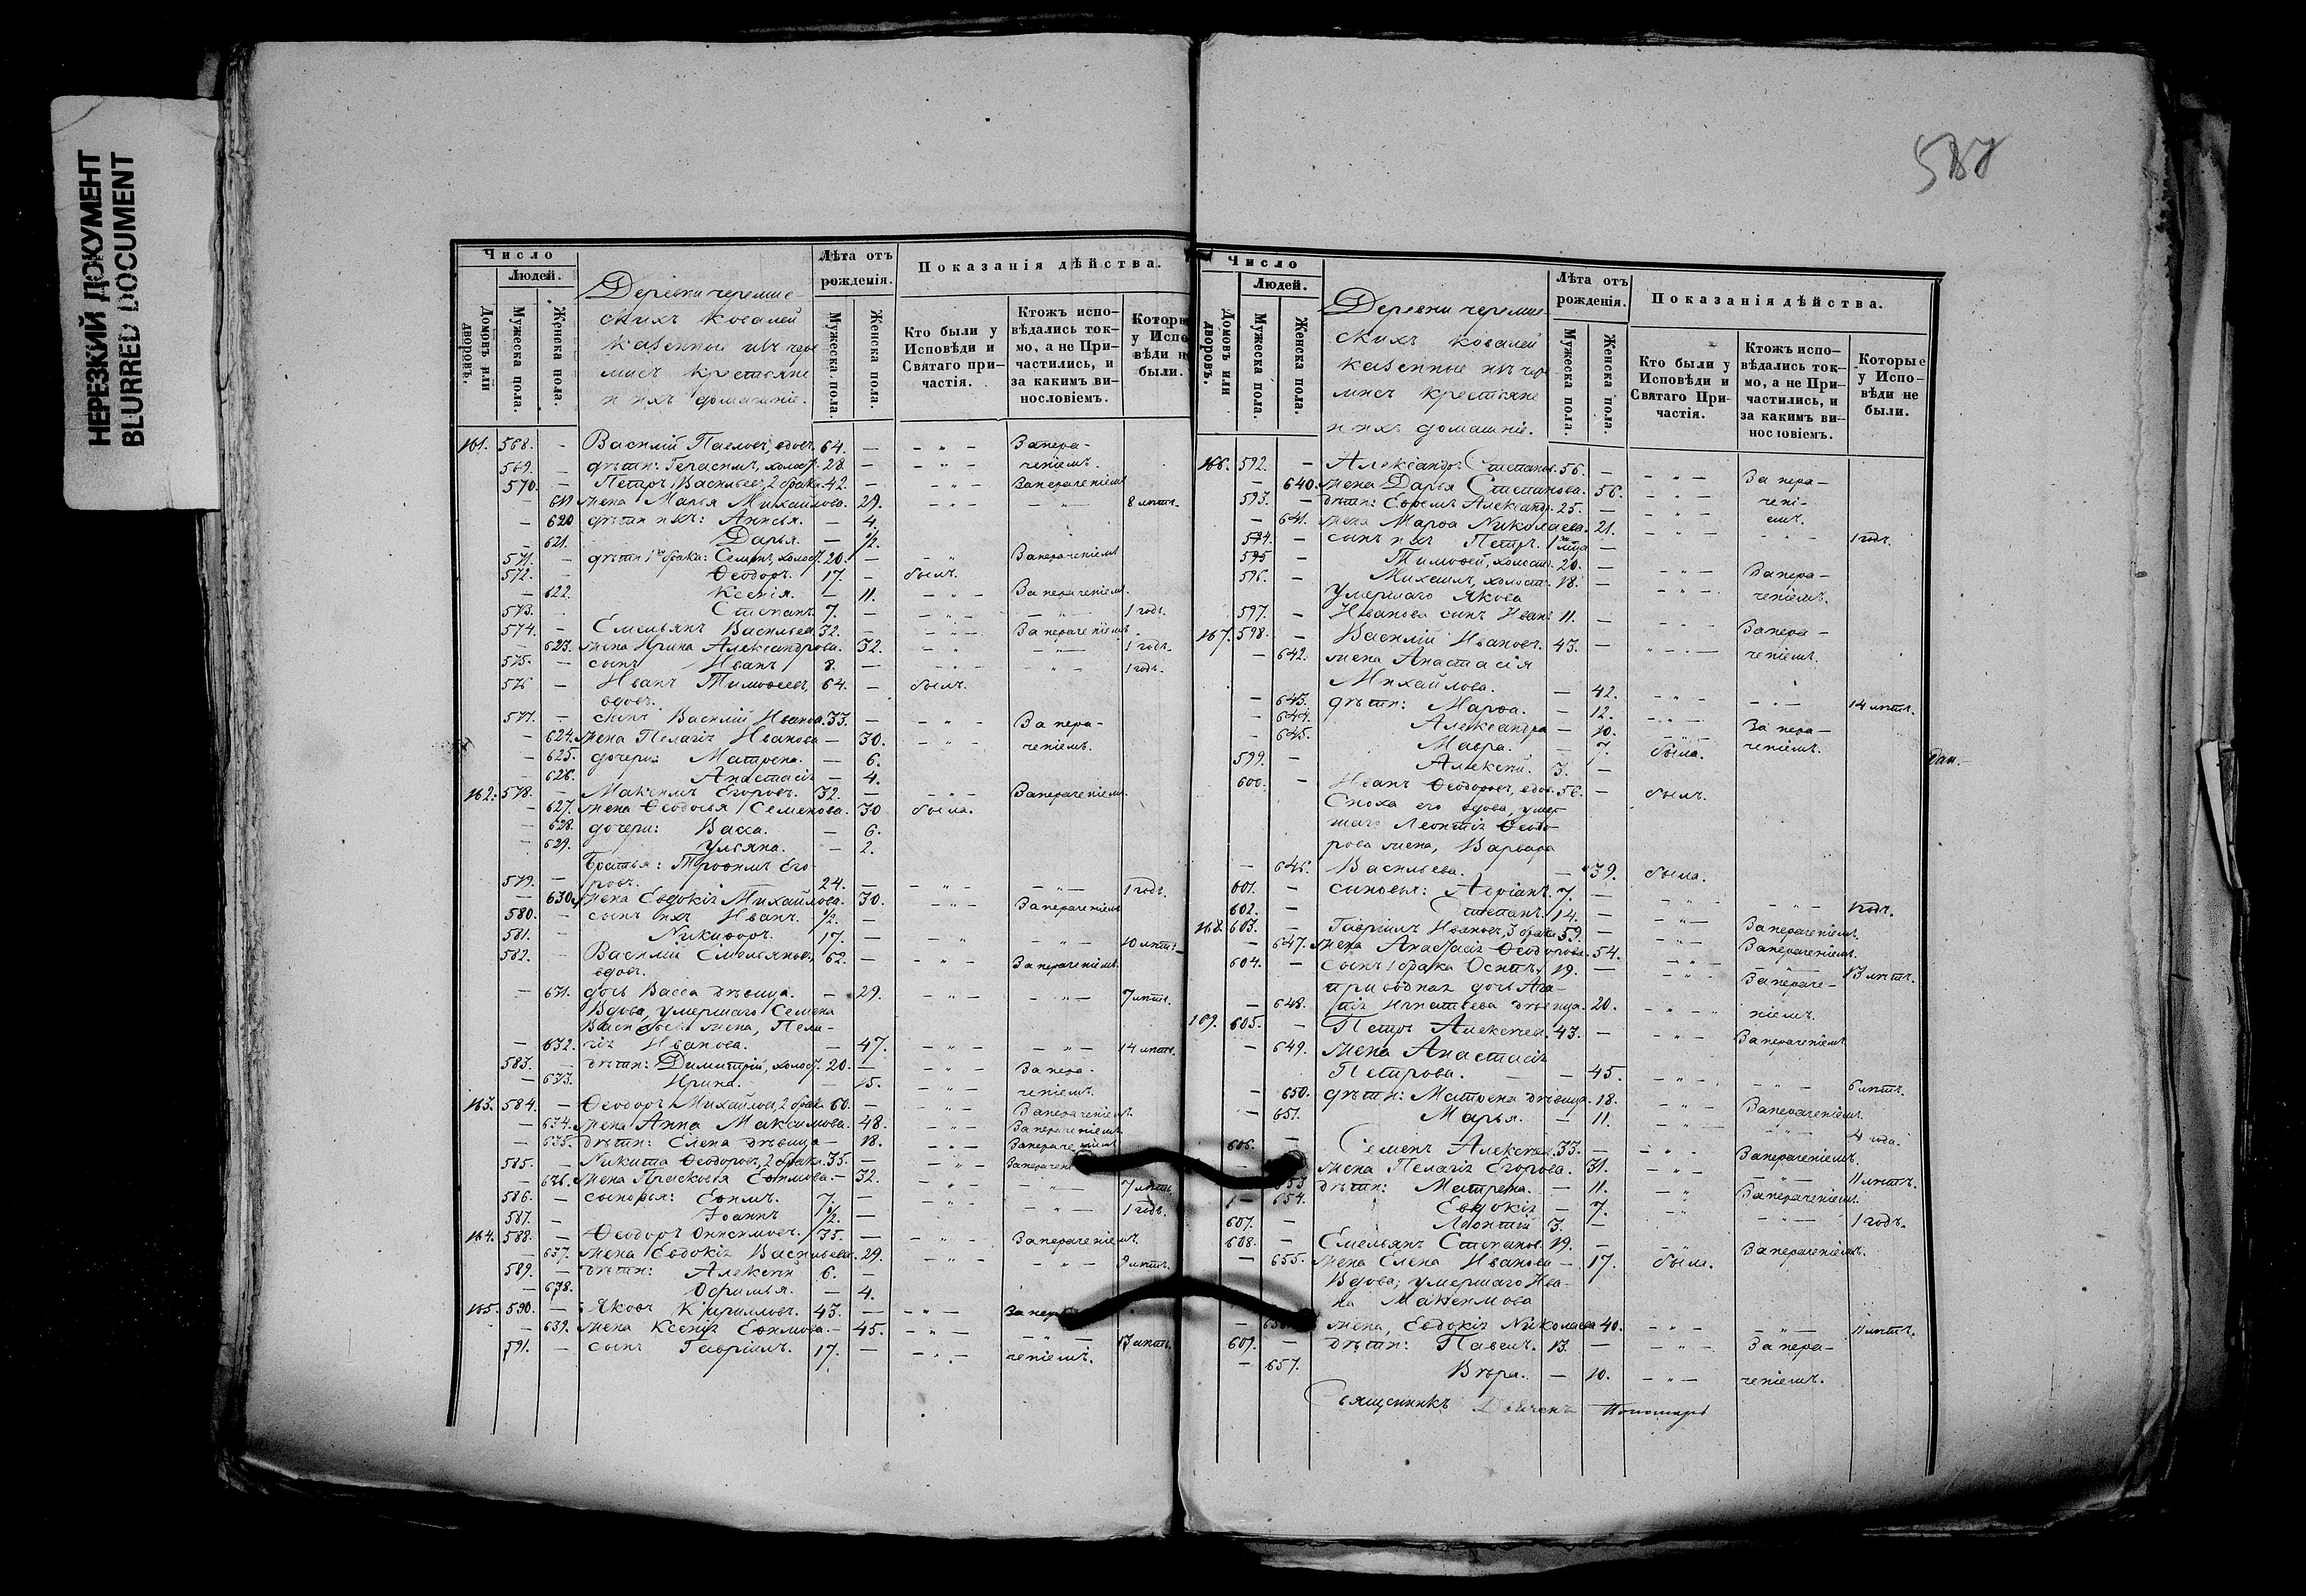 НЕРЕЗКИЙ ДОКУМЕНТ
BLURRED DOCUMENT
Число
Людей.
Домовъ или дворовъ.
Мужеска пола.
Женска пола.
Деревни черемис-
скихъ ковалей
казенные изъ чере
мисъ крестьяне
и ихъ домашніе.
Лѣта отъ рожденія.
Мужеска пола.
Женска пола.
Показанія дѣйства.
Кто были у Исповѣди и Святаго при-частія.
Ктожъ испо-вѣдались ток-мо, а не При-частились, и за какимъ ви-нословіемъ.
Которы у Испо вѣди н были.
161. 568. — Василій Павловъ, вдовъ. 64. — - " - За нера-
569. — дѣти: Герасимъ, холост. 28. — - " - ченіемъ.
570. — Петръ Васильевъ, 2 брака 42. — - " - За нераченіемъ
— 619 жена Марья Михайлова. 29. - " - — " — 8 лѣтъ.
— 620 дѣти ихъ: Анисія. — 4.
— 621. Дарья. — 1/2.
571. — дѣти 1го брака: Семенъ, холост. 20. — - " За нераченіемъ
572. — Ѳеодоръ. 17. — былъ.
— 622. Ксенія. — 11. - " - За нераченіемъ.
573. Степанъ. 7. — - " - — " — 1 годъ.
574. — Емельянъ Васильевъ 32. — - " - За нераченіемъ.
— 623. жена Ирина Александрова. 32. - " — " — 1 годъ.
575. — сынъ Иванъ 8. — - " - - " - 1 годъ.
576 — Иванъ Тимоѳеевъ, 64. — былъ.
вдовъ.
577. — сынъ Василій Иванов. 33. — - " - За нера-
— 624. жена Пелагія Иванова — 30. - " - ченіемъ.
— 625. дочери: Матрена. — 6.
— 626. Анастасія — 4.
162. 578. — Максимъ Егоровъ. 32. — - " - За нераченіемъ.
— 627. жена Ѳеодосья Семенова. 30 была.
— 628. дочери: Васса. — 6.
— 629. Ульяна. — 2.
Братья: Трофимъ Его
579. — ровъ. 24. — - " - — " — 1 годъ.
— 630. жена Евдокія Михайлова. 30. - " - За нераченіемъ
580. — сынъ ихъ Иванъ. 1/2. —
581. — Никифоръ. 17. — - " - " — 10 лѣтъ.
582. — Василій Емельяновъ, 62. — - " - За нераченіемъ.
вдовъ.
— 631. дочь Васса дѣвица. — 29. - " - - " — 7 лѣтъ.
Вдова, умершаго Семена
Васильева жена, Пела-
— 632. гія Иванова. — 47. - " - — " — 14 лѣтъ.
583. — дѣти: Димитрій, холост. 20. — - " - За нера-
— 633. Ирина. — 15. - " - ченіемъ.
163. 584. — Ѳеодоръ Михайлов, 2 брака 60. — - " - За нераченіемъ.
— 634. жена Анна Максимова. 48. - " - За нераченіемъ
— 635. дѣти: Елена дѣвица — 18. - " - За нераченіемъ
585. — Никита Ѳеодоровъ, 2 брака. 35. — - " - За нерачен
— 636. жена Прасковья Ефимова. — 32. - " - - " — 7 лѣтъ
586. — сыновья: Ефимъ. 7. — - " - - " — 1 годъ.
587. — Іоаннъ 1/2. —
164. 588. — Ѳеодоръ Онисимовъ. 35. — - " - За нераченіемъ.
— 637. жена Евдокія Васильева. 29. - " - - " — 9 лѣтъ.
589. — дѣти: Алексѣй 6. —
— 638. Ефимья. — 4.
165. 590. — Яковъ Кирилловъ. 43. — - " - За нер
— 639. жена Ксенія Ефимова. — 45. - " - - " — 13 лѣтъ.
591. — сынъ Гавріилъ. 17. — - " - ченіемъ.
587
Число
Людей.
Домовъ или дворовъ.
Мужеска пола.
Женска пола.
Деревни черемис-
скихъ ковалей
казенные изъ чере
мисъ крестьяне
и ихъ домашніе.
Лѣта отъ рожденія.
Мужеска пола.
Женска пола.
Показанія дѣйства.
Кто были у Исповѣди и Святаго При-частія.
Ктожъ испо-вѣдались ток-мо, а не При-частились, и за какимъ ви-нословіемъ.
Которые у Испо-вѣди не были.
166. 592. — Александръ Степанов. 56. — - " - За нера-
— 640. жена Дарья Степанова. 56. - " - чені-
593. — дѣти: Ефремъ Александр. 25. — - " - емъ.
— 641. жена Марѳа Николаева. 21. - " - - " - 1 годъ.
594. — сынъ ихъ Петръ. 1 мѣс. —
595 Тимоѳей, холост. 20. — - " - За нера-
596. — Михаилъ, холост. 18. — - " - ченіемъ.
Умершаго Якова
597. — Иванова сынъ Иванъ 11. — - " - За нера-
167. 598. — Василій Ивановъ. 43. — - " - ченіемъ.
— 642. жена Анастасія
Михайлова. — 42. - " - - " - 14 лѣтъ.
— 643. дѣти: Марѳа. — 12. - " - За нера-
— 644. Александра — 10. - " - ченіемъ.
— 645. Мавра. — 7. была.
599. — Алексѣй. 3. —
600. — Иванъ Ѳеодоровъ, вдов. 56. — былъ.
Сноха его вдова, умер-
шаго Леонтія Ѳеодо-
рова жена, Варвара
— 646. Васильева. — 39. была.
601. — сыновья: Адріанъ. 7. — - " - - " - 1 годъ.
602. — Степанъ. 14. — - " - За нераченіемъ.
168. 603. — Гавріилъ Ивановъ, 3 брака 59. — - " - За нераченіемъ.
— 647. жена Анастасія Ѳеодорова. 54. - " - - " — 13 лѣтъ.
604. — Сынъ 1 брака Осипъ. 19. — - " - За нераче-
приводная дочь Ага-
— 648. пія Игнатьева дѣвица. 20. - " - ніемъ.
169. 605. — Петръ Алексѣев. 43. — - " - За нераченіемъ
— 649. жена Анастасія
Петрова. — 45. - " - - " — 6 лѣтъ.
— 650. дѣти: Матрена дѣвица. 18. - " - За нераченіемъ.
— 651. Марья. — 11. - " - - " — 4 года.
606. — Семенъ Алексѣев. 33. — - " - За нераченіемъ.
жена Пелагія Егорова. 31. - " - — " — 11 лѣтъ.
653 дѣти: Матрена. — 11. - " За нераченіемъ
— 654. Евдокія — 7. - " - " — 1 годъ.
607. — Леонтій 3. —
608. — Емельянъ Степанов. 19. — - " За нераченіемъ.
— 655. жена Елена Иванова — 17. была.
Вдова, умершаго Ива-
на Максимова
— 656 жена, Евдокія Николаева 40. - " - - " — 11 лѣтъ.
609. — дѣти: Павелъ. 13. — - " - За нера-
— 657. Вѣра. — 10. - " - ченіемъ.
Священникъ Пономарь